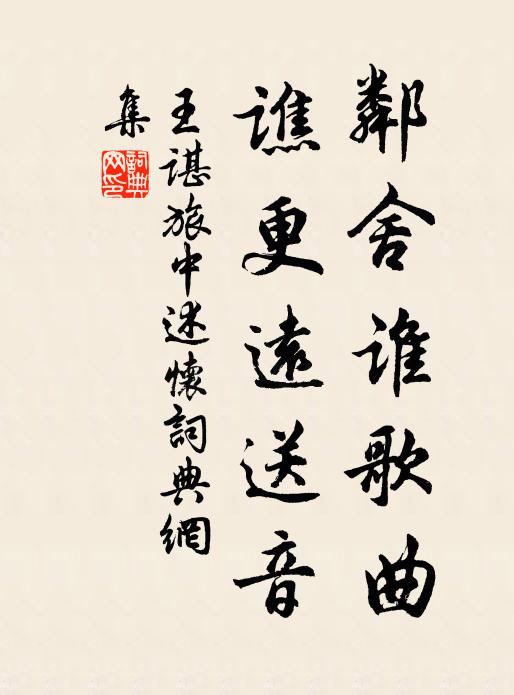 鄰舍誰歌曲
譙更遠送音
王諶旅中述懷詞典網
集
詞典
网印